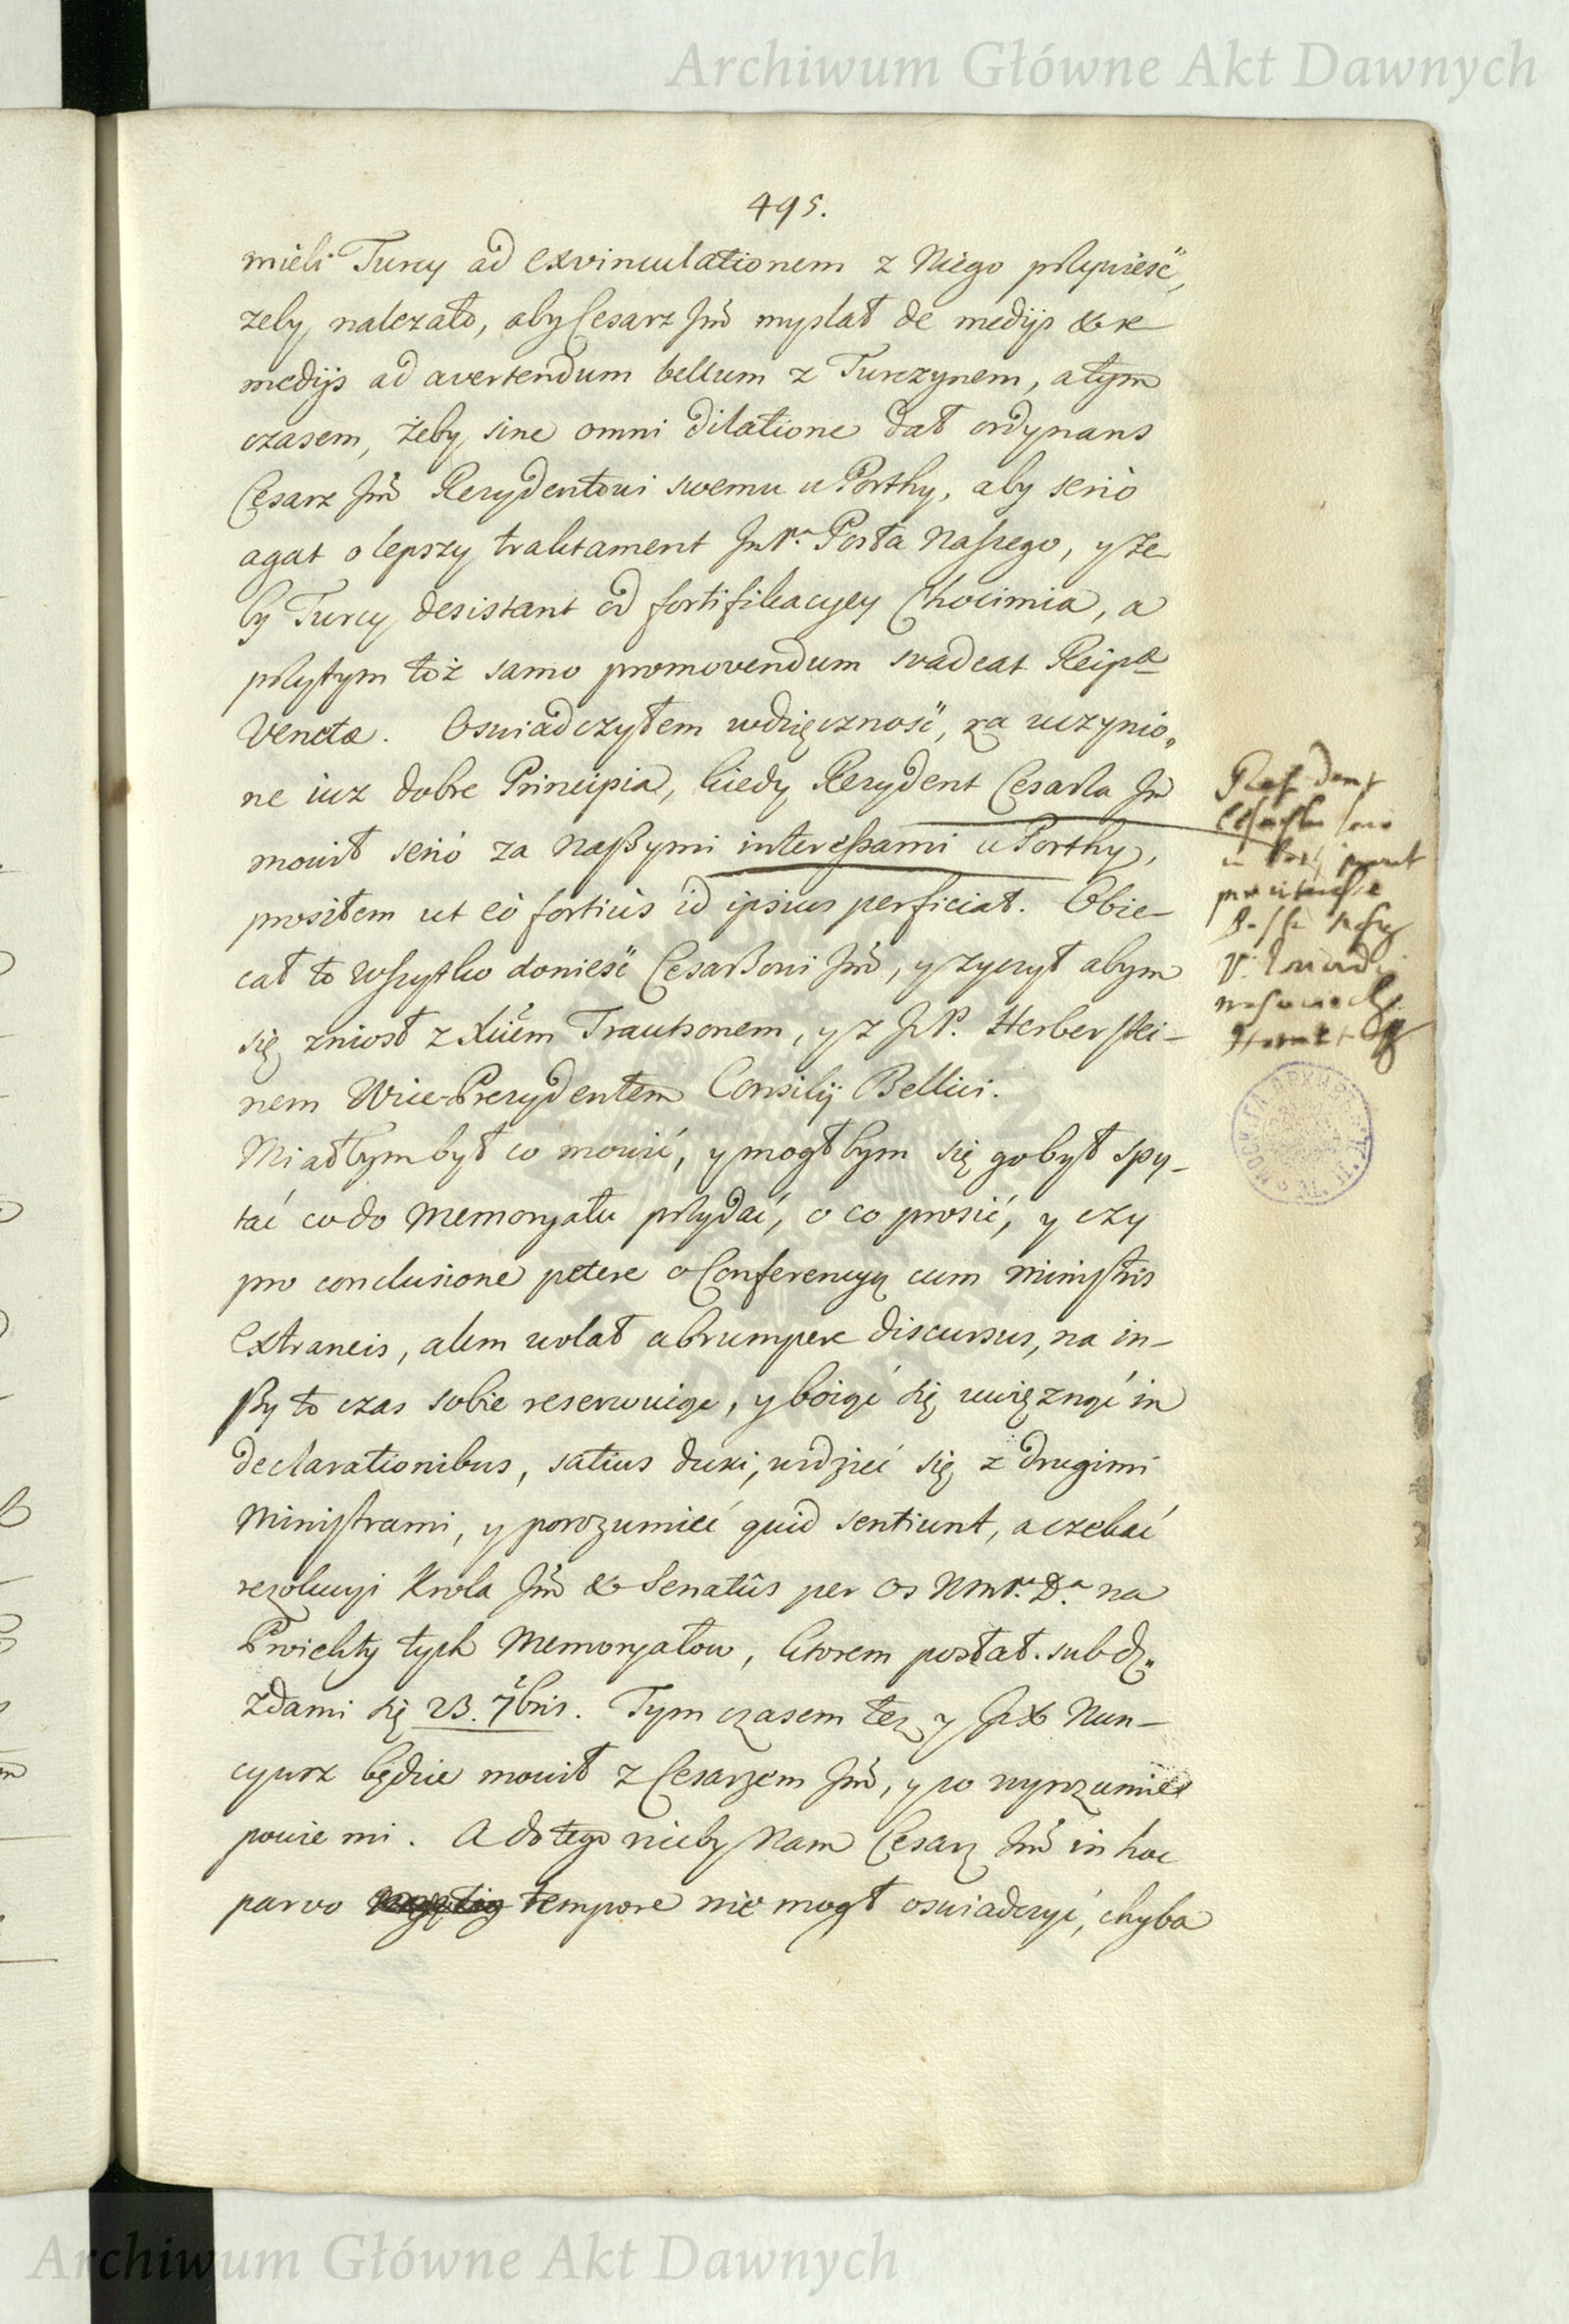 Archiwum Główne Akt Dawnych
495.
mieli Turcy ad exvinculationem z Niego przywieść,
zeby nalezało, aby Cesarz Jmć myslał de medijs & re
medijs ad avertendum bellum z Turczynem, a tym
czasem, żeby sine omni dilatione dał ordynans
Cesarz Jmć Rezydentowi swemu u Porthy, aby seriò
agat o lepszy traktament JmP.ª Posła Naszego, y że
by Turcy desistant od fortifikacyey Chocimia, a
przytym toż samo promovendum svadeat Reip̃æ
Venetæ. Oswiadczyłem wdzięczność, za uczynio„
ne iuz dobre Principia, kiedy Rezydent Cesarza Jmć
mowił seriò za naszymi interessami u Porthy,
prosiłem ut eò fortiùs id ipsius perficiat. Obie-
cał to wszytko donieść Cesarzowi Jmć, y zyczył abym
się zniosł z Xciem Trautsonem, y z JP. Herberstei-
nem Wice-Prezydentem Consilij Bellici.
Miałbym był co mowić, y mogłbym się go był spy-
tać co do Memoryału przydać, o co prosić, y czy
pro conclusione petere o Conferencyą cum Ministris
Extraneis, alem wolał abrumpere discursus, na in-
szy to czas sobie reserwuiąc, y boiąć się uwięznąć in
declarationibus, satius duxi, widzieć się z drugimi
Ministrami, y porozumieć quid sentiunt, a czekać
rezolucyi Krola Jmć & Senatûs per os WmP.ª D.ª na
Proiekty tych Memoryałow, ktorem posłał. sub dź„
zdami się 23. 7bris. Tym czasem tez y JX Nun-
cyusz będzie mowił z Cesarzem Jmć, y co wyrozumie
powie mi. A do tego nicby Nam Cesarz Jmć in hoc
parvo tempore nie mogł oswiadczyć, chyba
Rezident
Archiwum Głównе Akt Dawnych